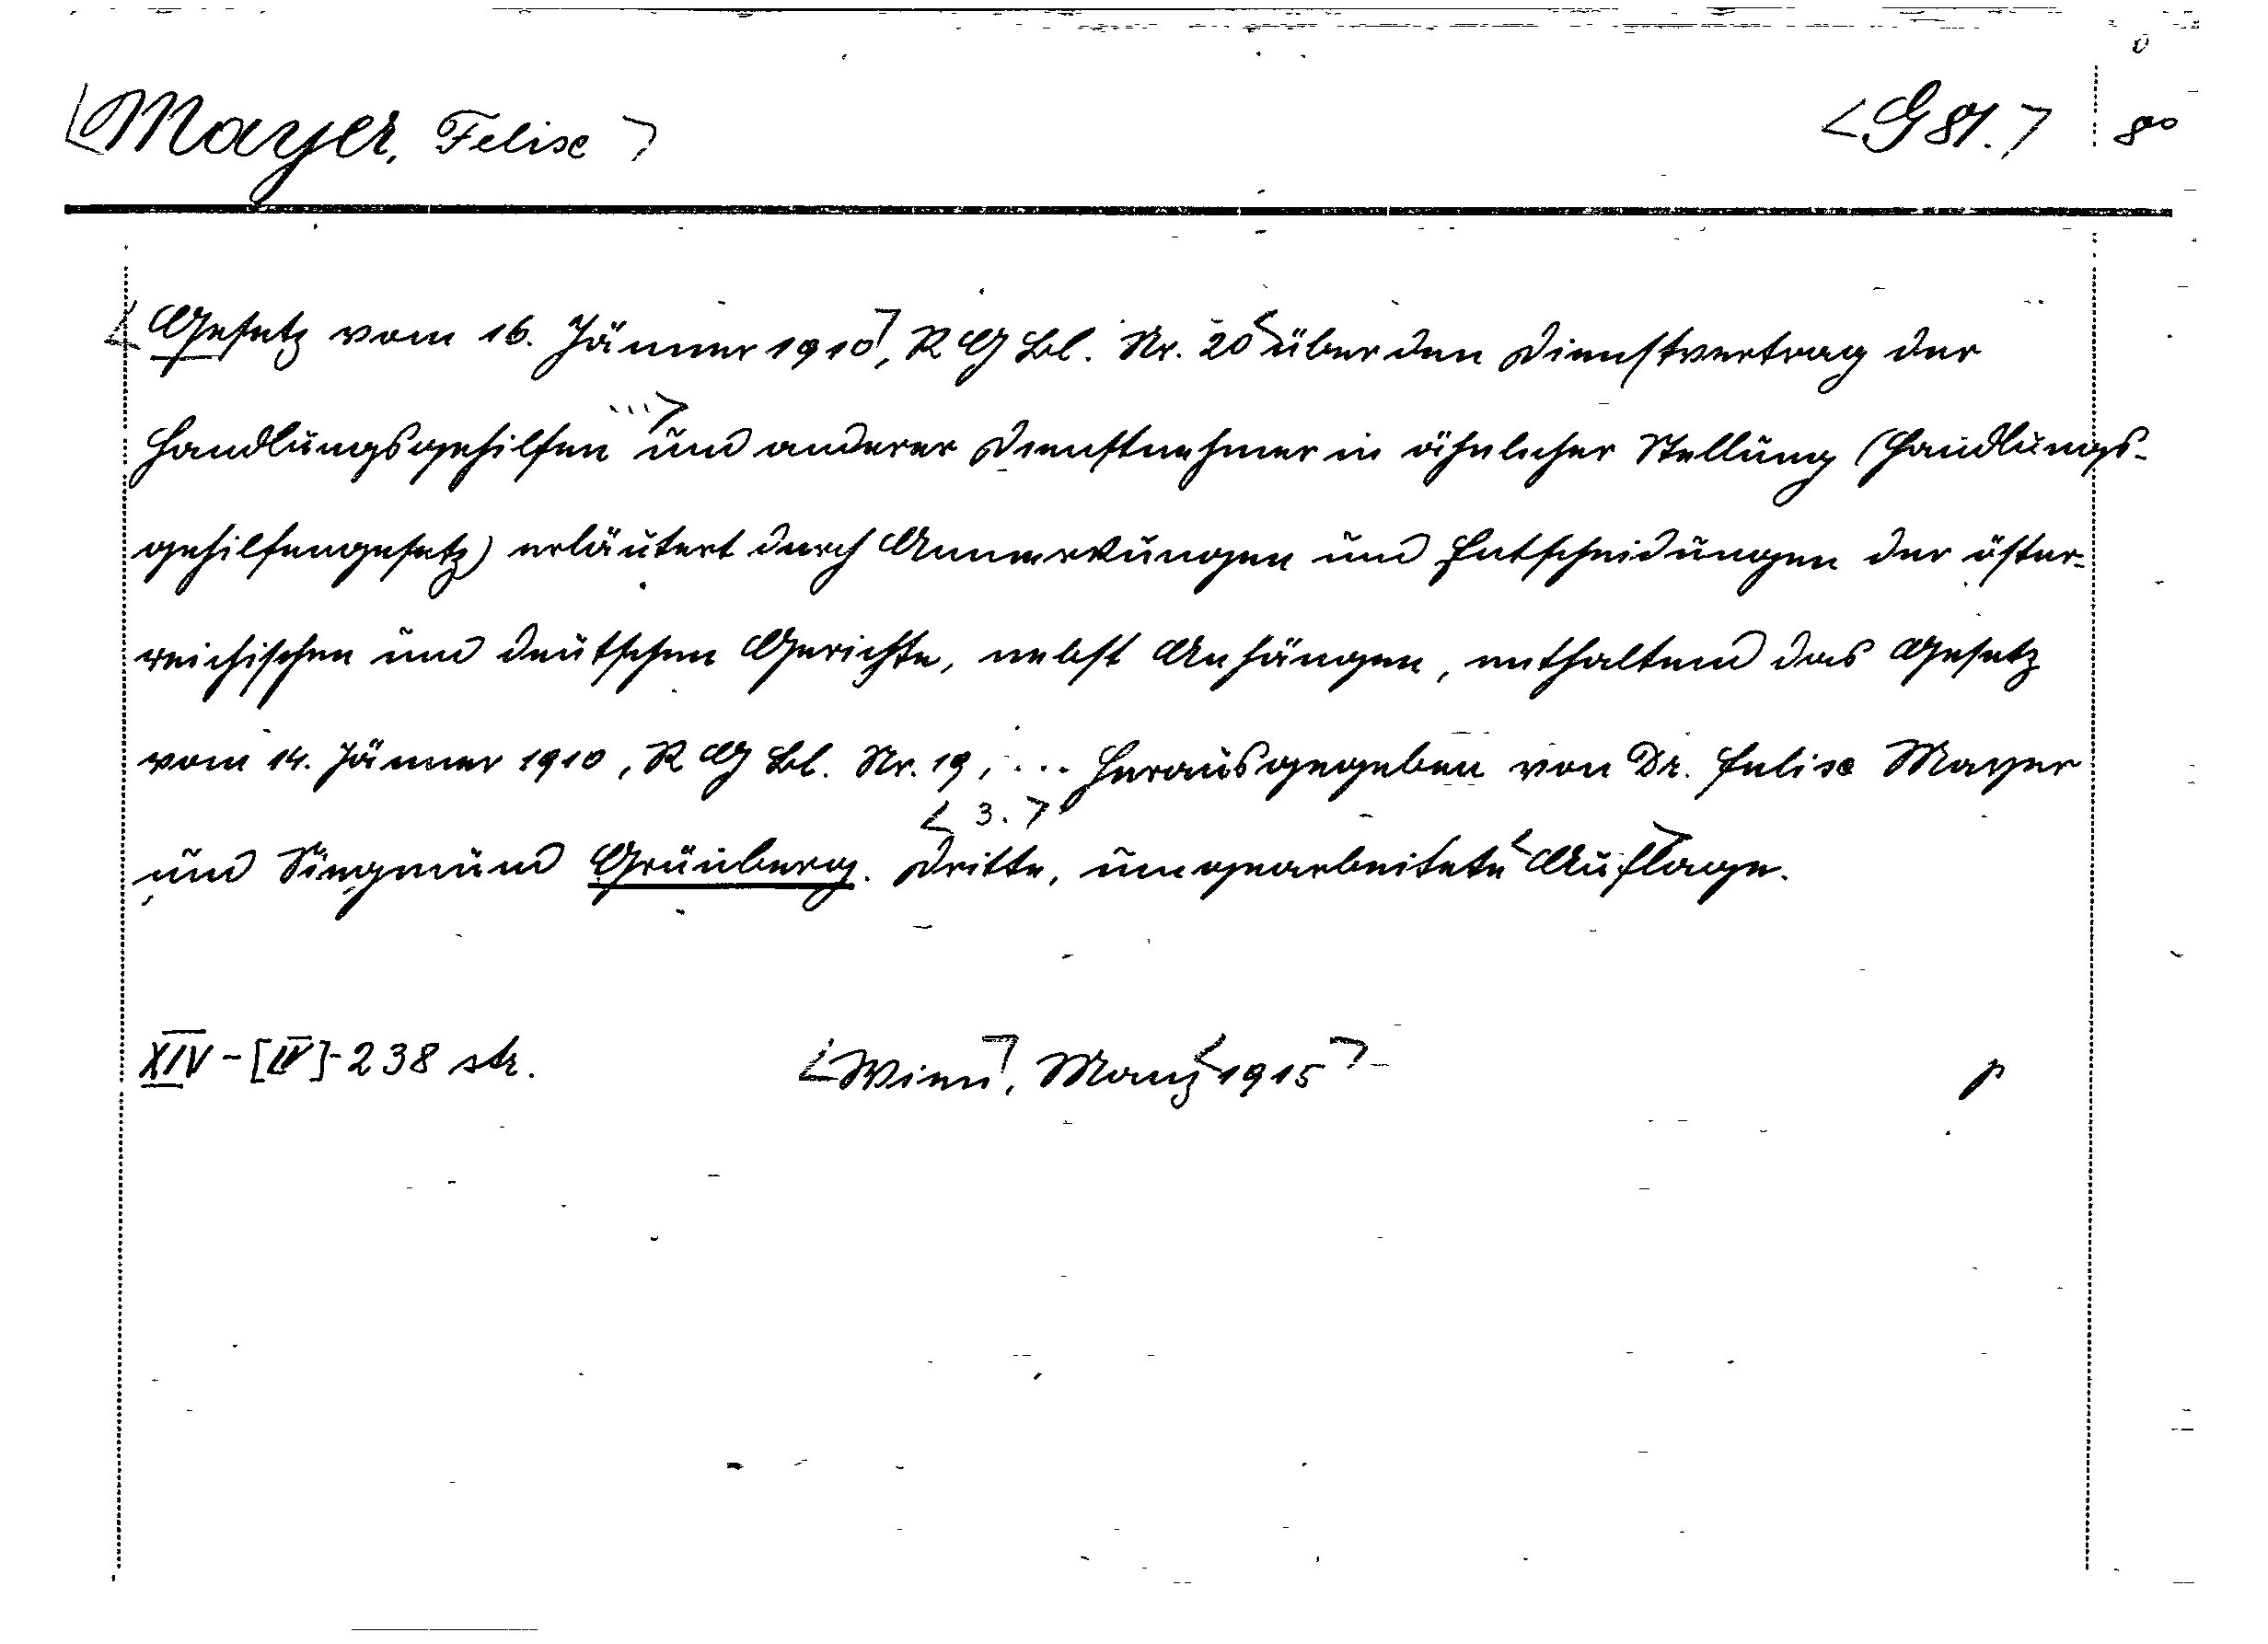 Mayer, Felix
G 81. 8°
Gesetz vom 16. Jänner 1910, R G Bl. Nr. 20 über den Dienstvertrag der
...
Handlungsgehilfen und anderer Dienstnehmer in ähnlicher Stellung (Handlungs-
gehilfengesetz) erläutert durch Anmerkungen und Entscheidungen der öster-
reichischen und deutschen Gerichte, nebst Anhängen, enthaltend das Gesetz
vom 14. Jänner 1910, R G Bl. Nr. 19, ... herausgegeben von Dr. Felix Mayer
3.
und Siegmund Grünberg. Dritte, umgearbeitete Auflage.
XIV-[IV]-238 str. Wien, Manz 1915 p